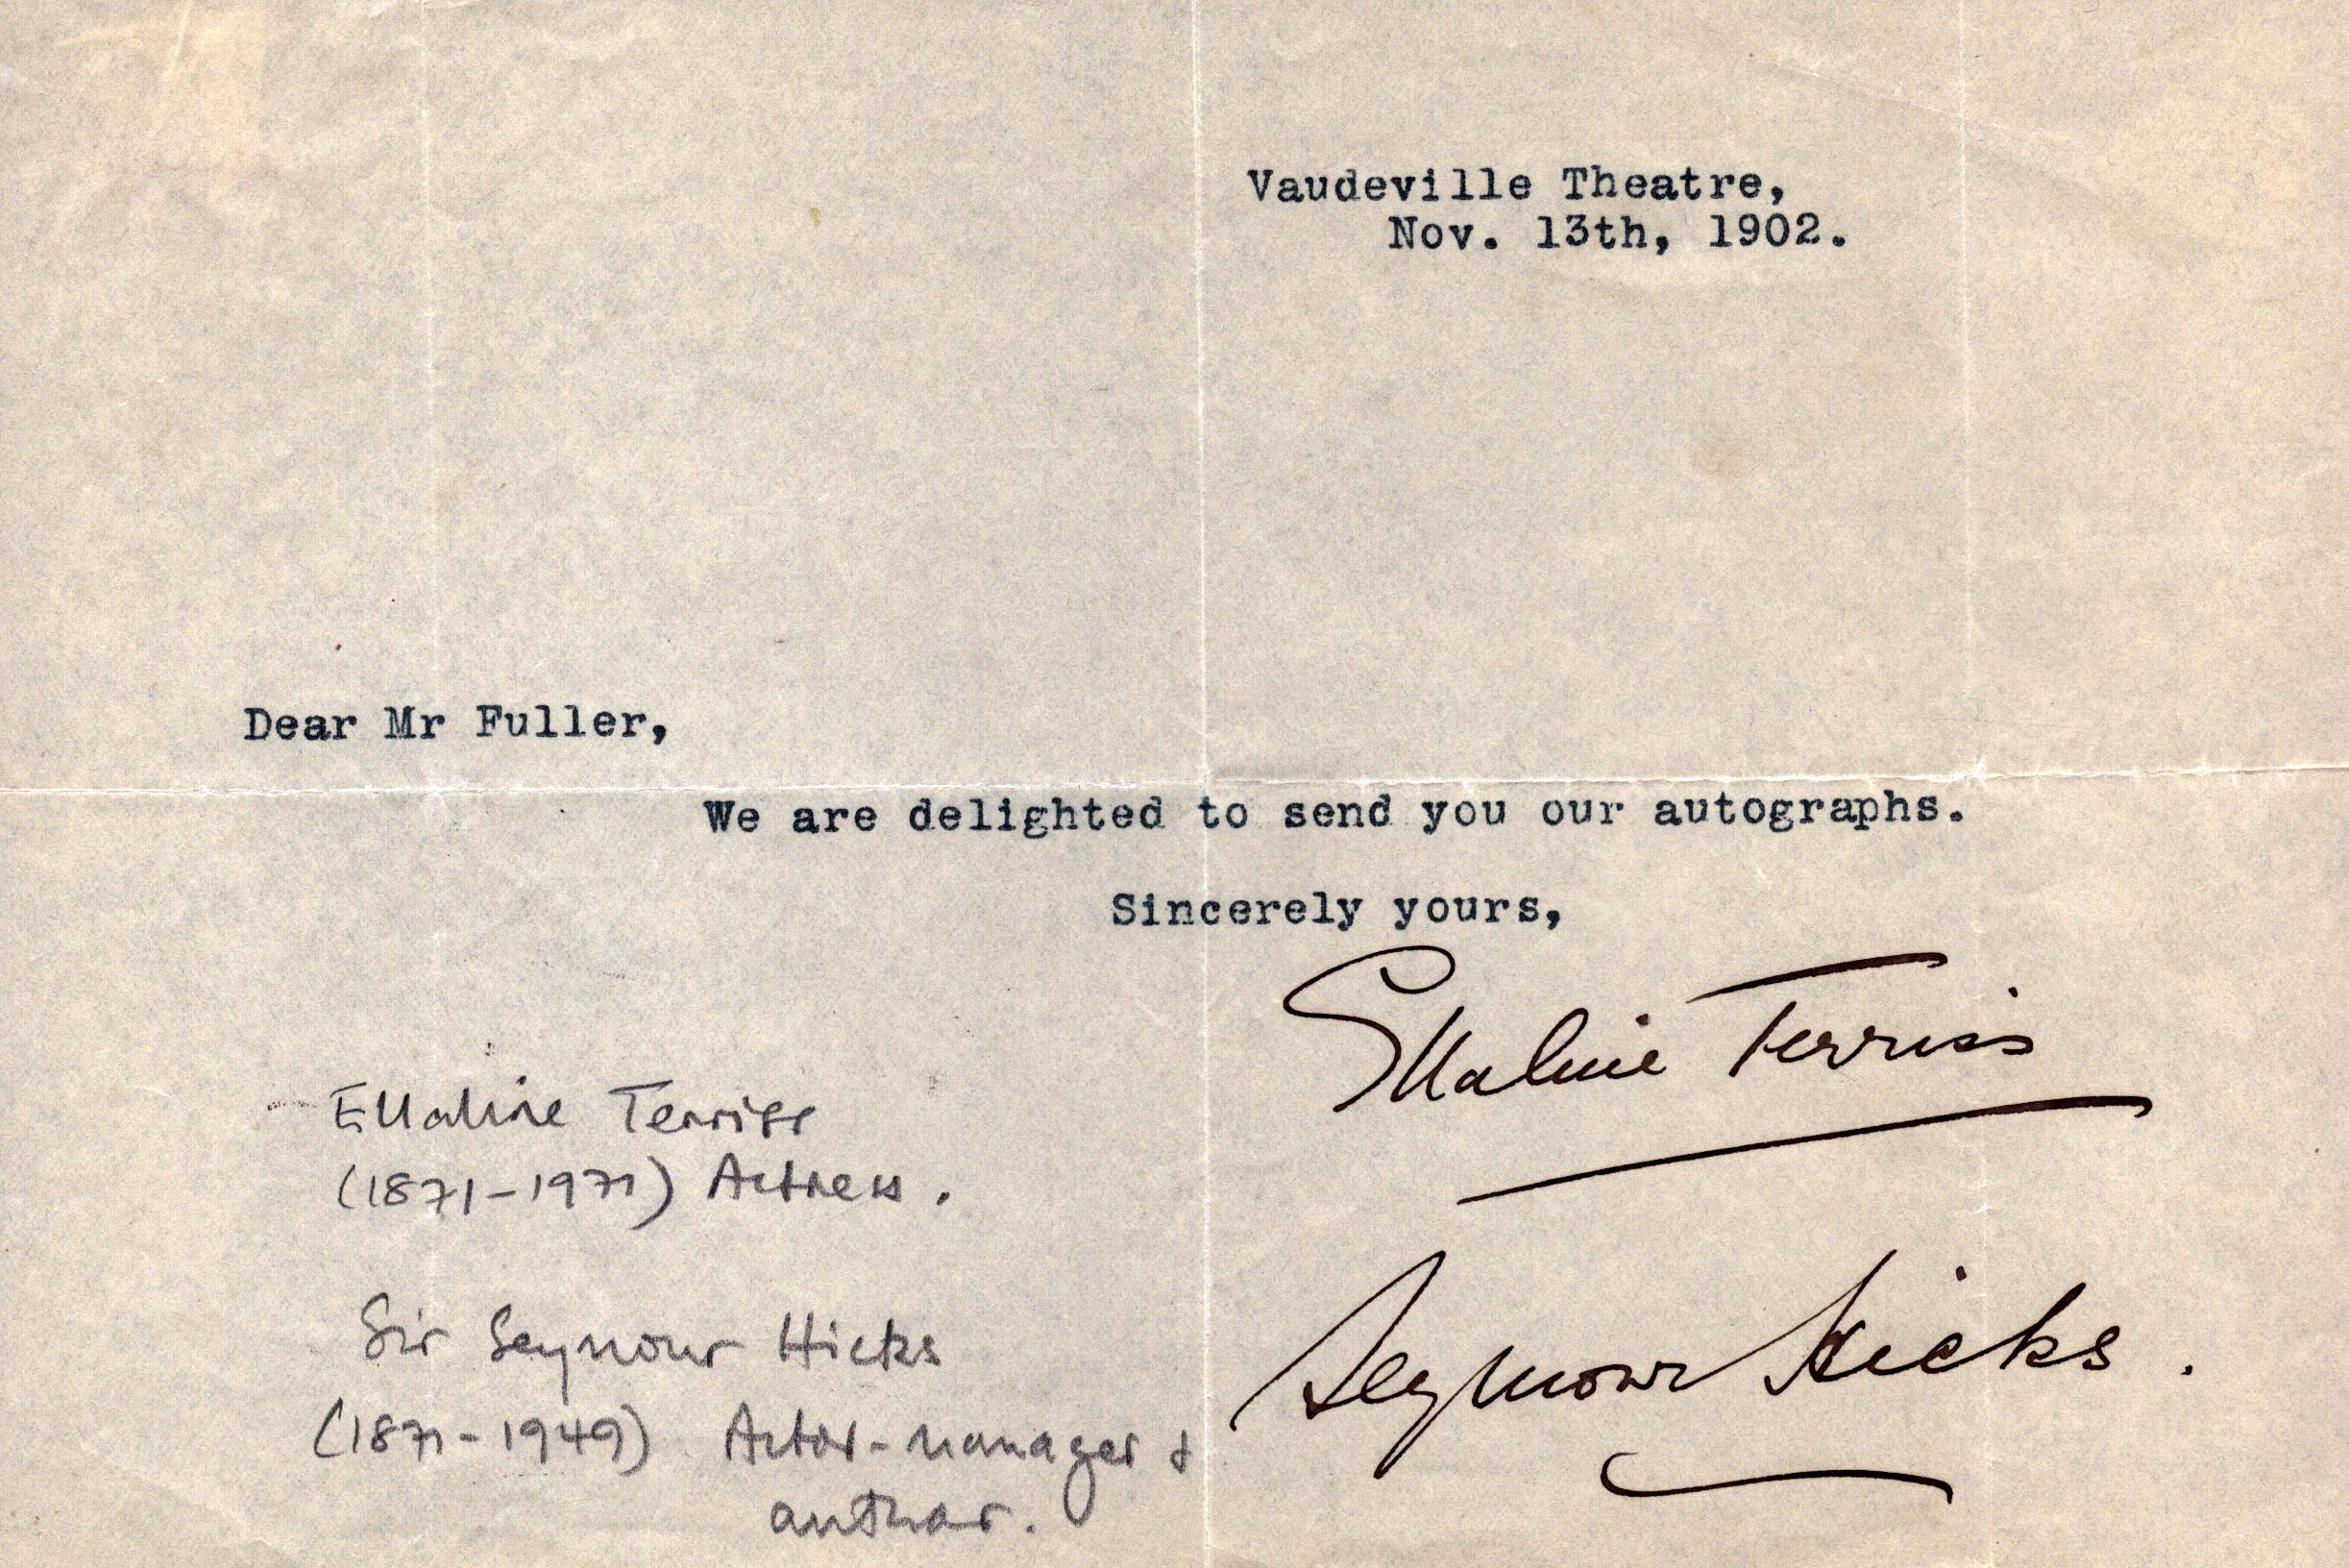 Vaudeville Theatre,
Nov. 13th, 1902.
Dear Mr Fuller,
We are delighted to send you our autographs.
Sincerely yours,
Ellaline Terriss
Seymour Hicks.
Ellaline Terriss
(1871-1971) Actress.
Sir Seymour Hicks
(1871-1949) Actor-manager &
author.